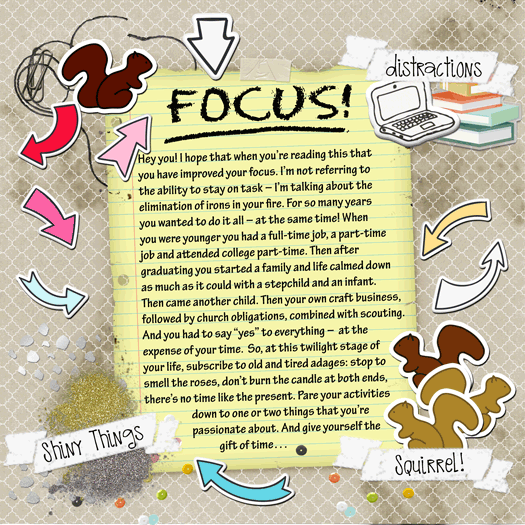 distractions
FOCUS!
Hey you! I hope that when you're reading this that
you have improved your focus. I'm not referring to
the ability to stay on task – I'm talking about the
elimination of irons in your fire. For so many years
you wanted to do it all – at the same time! When
you were younger you had a full-time job, a part-time
job and attended college part-time. Then after
graduating you started a family and life calmed down
as much as it could with a stepchild and an infant.
Then came another child. Then your own craft business,
followed by church obligations, combined with scouting.
And you had to say "yes" to everything – at the
expense of your time. So, at this twilight stage of
your life, subscribe to old and tired adages: stop to
smell the roses, don't burn the candle at both ends,
there's no time like the present. Pare your activities
down to one or two things that you're
passionate about. And give yourself the
gift of time...
Shiny Things
Squirrel!